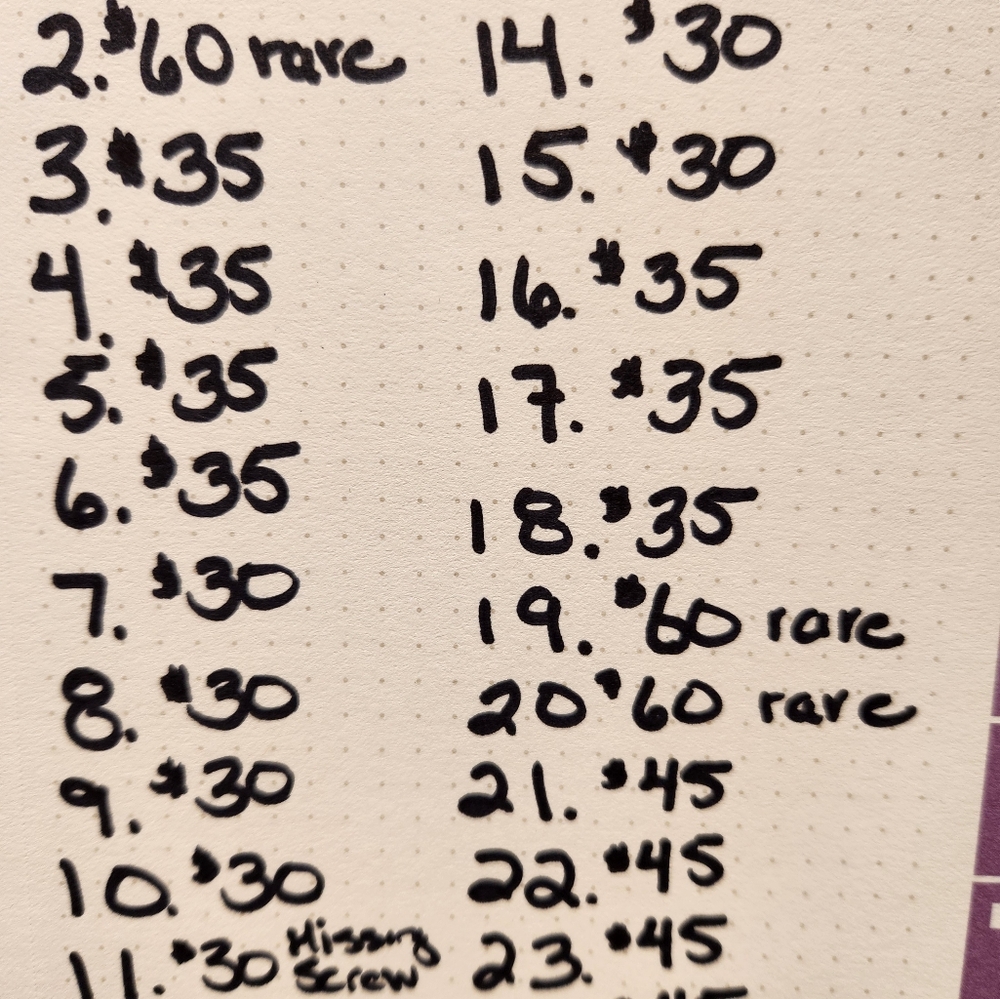 2. $60 rare
3. $35
4. $35
5. $35
6. $35
7. $30
8. $30
9. $30
10. $30
11. $30 Missing Screw
14. $30
15. $30
16. $35
17. $35
18. $35
19. $60 rare
20 $60 rare
21. $45
22. $45
23. $45